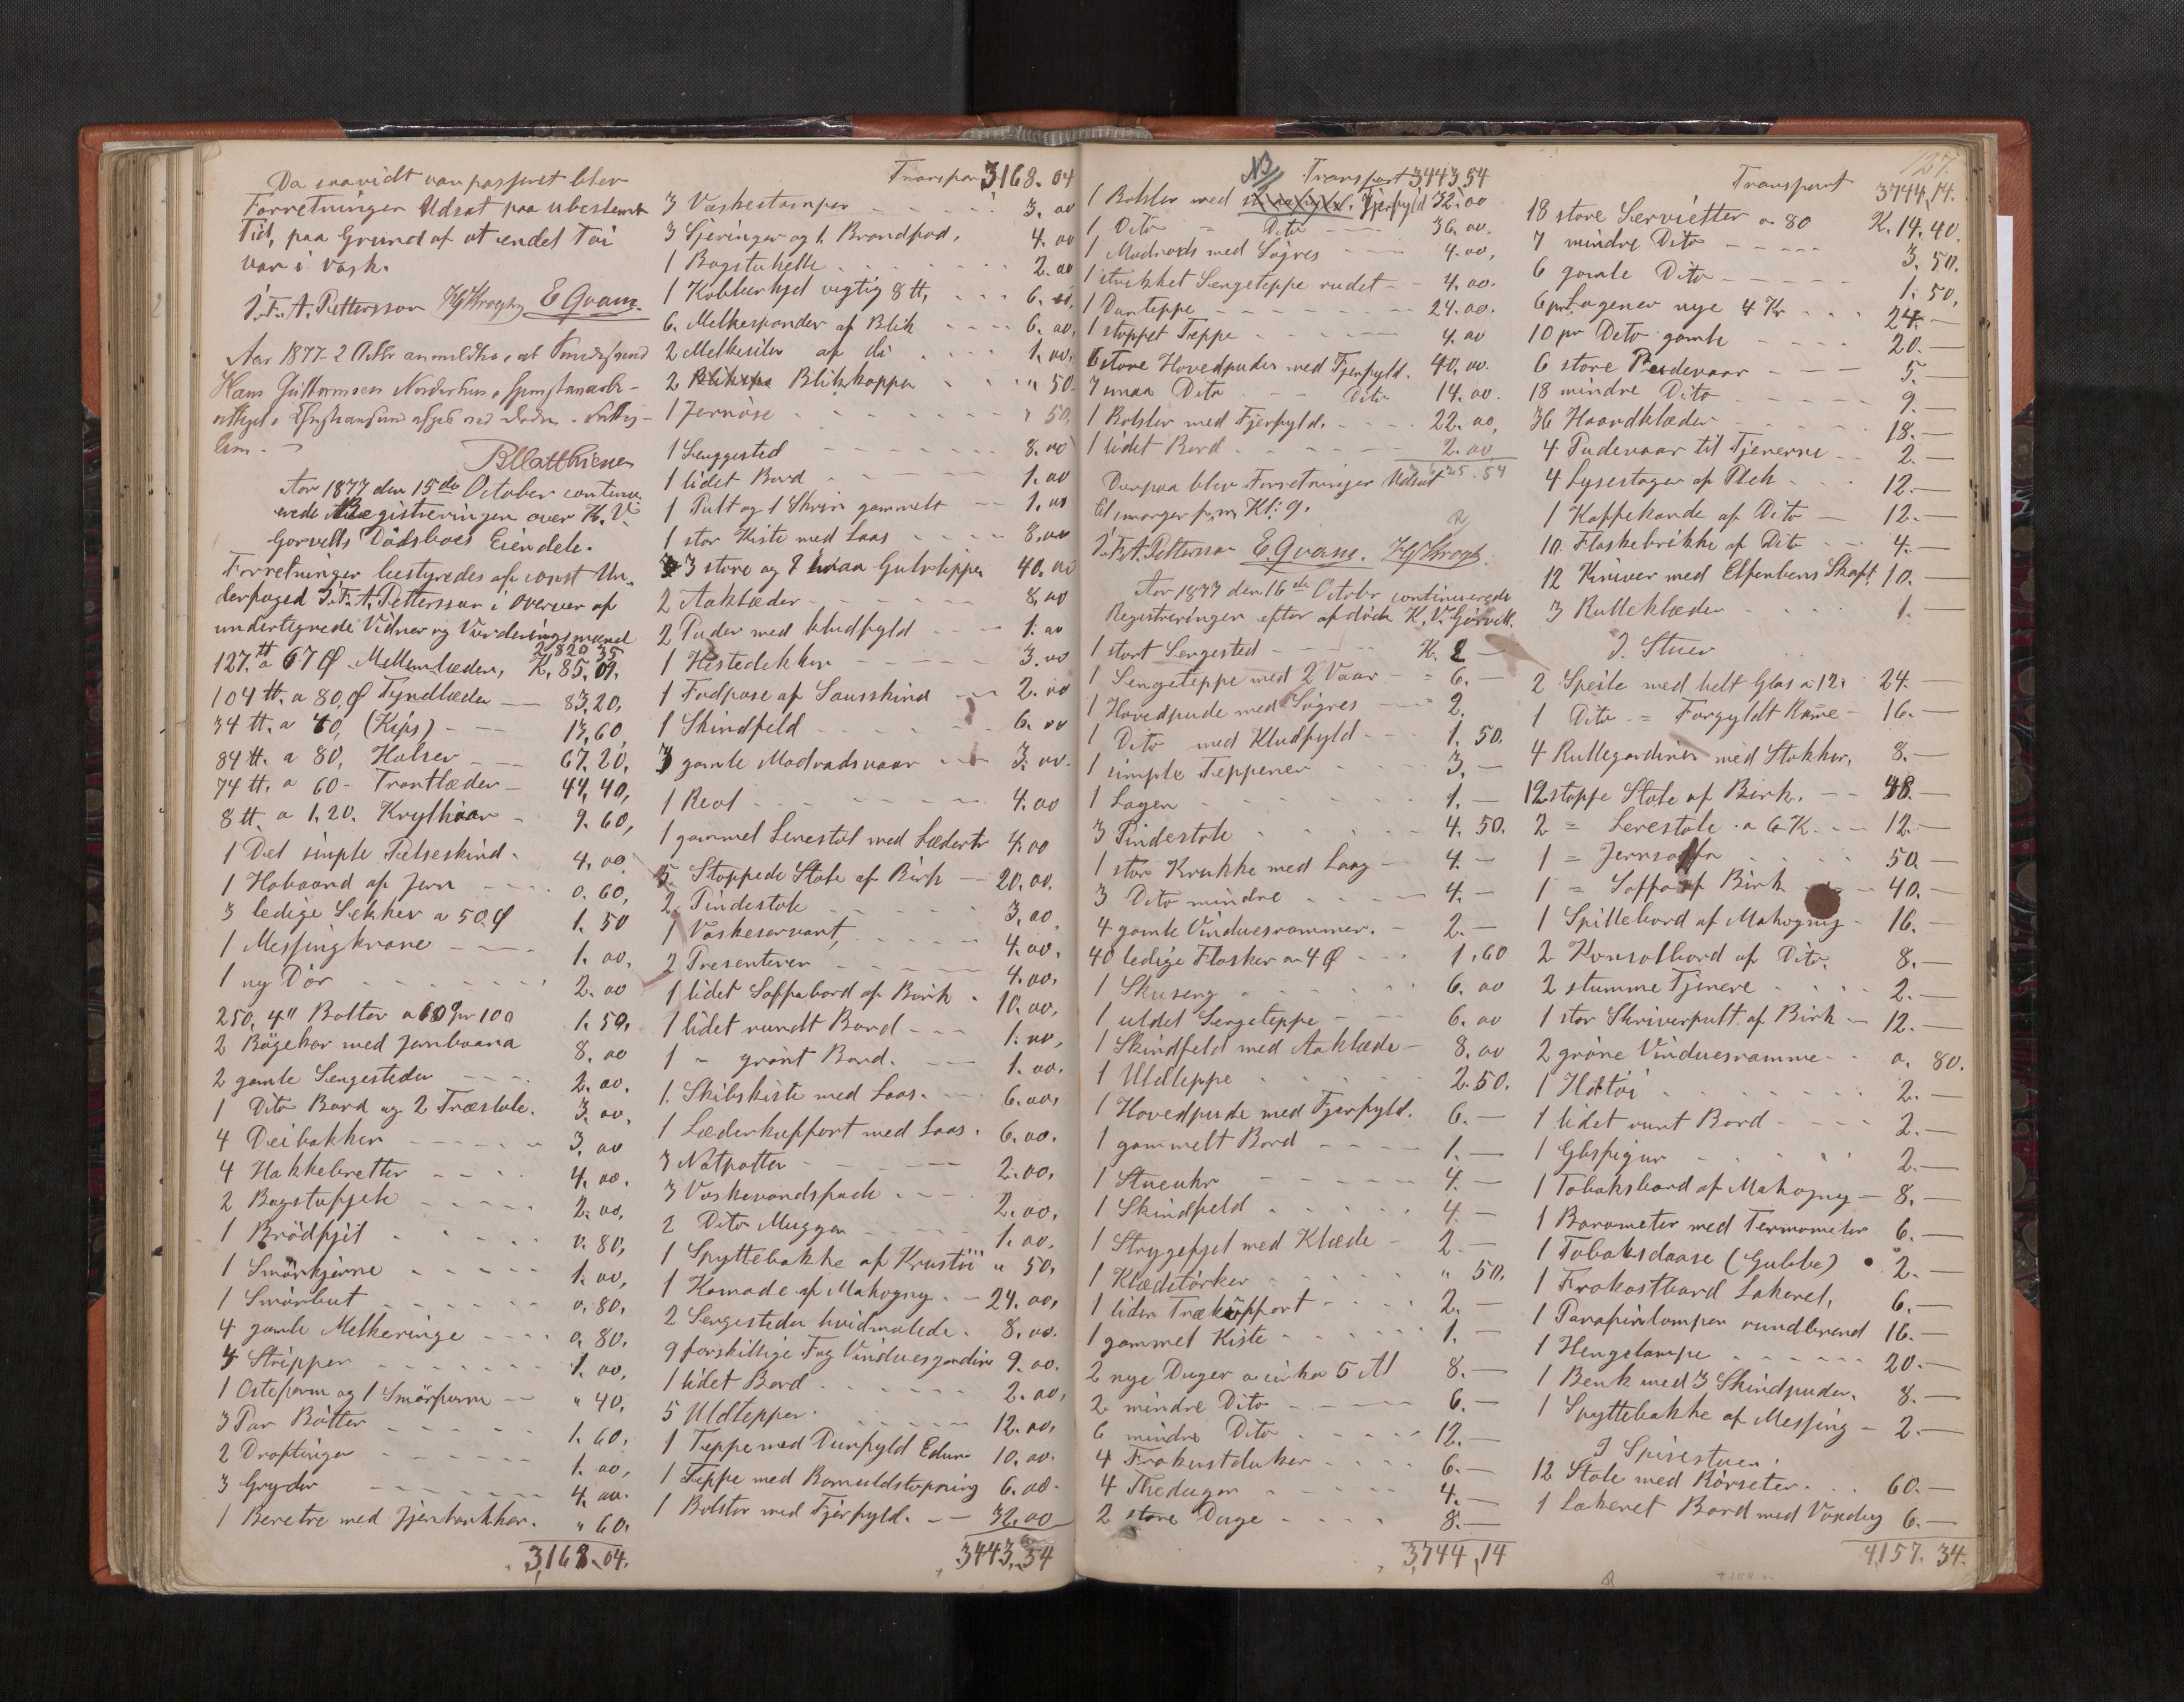 Da saavidt var passeret blev
Forretningen Udsat paa ubestemt
Tid, paa Grund af at endel Töi
var i Vask.
J. F. A. Pettersson HJKrogh E Qvam.
Aar 1877 2 Octbr anmeldtes, at
Hans Guttormsen
B Matthiesen
Aar 1877 den 15de October continu-
erede Registreringen over K. V.
Gorvells Dödsboes Eiendele.
Forretningen bestyredes af const Un-
derfoged J. F. A. Pettersson i Overvær af
undertegnede Vidner og Vurderingsmænd
2,820 35
127 tt a 67 Ø Mellemlæder, K. 85,09.
104 tt. a 80 Ø Tyndlæder — 83,20,
34 tt. a 40, (Kips) - - - 13,60,
84 tt. a 80, Halser - - - 67,20,
74 tt. a 60 - Trantlæder - 44,40,
8 tt. a 1,20. Krylhaar - 9.60,
1 Del simple Pelseskind. 4.00
1 Hobaand af Jern - - - 0.60,
3 ledige Sekker a 50 Ø 1.50
1 Messingkrane - - - 1.00,
1 ny Dör . . . . . 2.00
250, 4" Bolter a 60 Ø pr 100 1.50,
2 Bögekar med Jernbaand 8.00
2 gamle Sengesteder - - - 2.00,
1 Dito Bord og 2 Træstole. 3.00,
4 Deibakker - - - - - 3.00
4 Hakkebretter - - - 4.00.
2 Bagstufjele - - - - 2.00,
1 Brödfjel . . . . . 0.80,
1 Smörkjerne - - - - - 1.00,
1 Smörbut - - - - - 0.80,
4 gamle Melkeringe - - - 0,80.
4 Stripper - - - - - 1.00,
1 Osteform og 1 Smörform — " 40,
3 Par Bötter - - - - - 1.60,
2 Droftinger - - - - - 1.00,
3 Gryder - - - - - - 4.00.
1 Beretre med Jernbankker. " 60.
3,168.04.
Transport 3,168.04
3 Vaskestamper - - - - 3.00
3 Sjeringer og 1 Brandfod, 4.00
1 Bagstuhelle . . . . . . 2.00
1 Kobberkjel vegtig 8 tt, - - - 6.
6. Melkespander af Blik - - - 6.00,
2 Melkesiler af di . . . . 1.00,
2 Blikkopper . . . " 50.
1 Jernöse - - - - - " 50,
1 Senggested - - - - - 8.00
1 lidet Bord - - - - - 1.00
1 Pult og 1 Skrin gammelt — 1.00
1 stor Kiste med Laas - - - - 8.00
3 store og 2 smaa Gulvtepper 40.00
2 Aaklæder - - - - - 8,00
2 Puder med kludfyld - - - 1.00
1 Hestedekken - - - - - 3.00
1 Fodpose af Sauskind — 2.00
1 Skindfeld - - - - - 6.00
3 gamle Madradsvaar - - - 3.00.
1 Reol - - - - - - - 4.00
1 gammel Lenestol med Lædertr 4.00
5 Stoppede Stole af Birk — 20.00.
2. Pindestole - - - - - 3.00,
1 Vaskeservant, - - - - 4.00,
2 Presenteren - - - - - 4.00,
1 lidet Soffabord af Birk . 10.00,
1 lidet rundt Bord - - - 1.00,
1 " grönt Bord. - - - 1.00.
1. Skibskiste med Laas. - - - 6.00,
1 Læderkuffert med Laas. 6.00.
3 Natpotter - - - - - 2.00,
3 Vaskevandsfade . - - - 2.00,
2 Dito Mugger - - - - 1.00,
1 Spyttebakke af Krustöi " 50,
1 Komode af Mahogny. - 24.00,
2 Sengesteder hvidmalede. 8.00.
9 forskillige Fag Vinduesgardiner 9.00.
1 lidet Bord . . . . . 2.00,
5 Uldtepper. - - - - - 12.00,
1 Teppe med Dunfyld Eder 10.00.
1 Teppe med Bomuldstopning 6.00.
1 Bolster med Fjerfyld. - - 32.00
3443,54
NB Transport 3443 54
1 Bolster med Fjerfyld 32.00
1 Dito = Dito - - - 36.00.
1 Madrads med Sögres - - - 4.00,
1 strikket Sengeteppe rudet - - 4.00.
1 Dunteppe - - - - - 24.00.
1 stoppet Teppe - - - - 4.00
6 store Hovedpuder med Fjerfyld. 40,00.
7 smaa Dito - - Dito 14.00.
1 Bolster med Fjerfyld. - - - 22.00,
1 lidet Bord . - - - - 2.00
3625.54
Derpaa blev Forretningen Udsat
til imorgen f.m. Kl: 9.
J. F. A. Pettersson E. Qvam. HJKrogh.
Aar 1877 den 16de Octobr continuerede
Registreringen efter afdöde K. V. Görvell.
1 stort Sengested - - - - - K. 2 —
1 Sengeteppe med 2 Vaar - = 6. —
1 Hovedpude med Sögres - - - 2.
1 Dito med Kludfyld - - - 1.50.
1 simple Teppener - - - - 3. —
1 Lagen - - - - - - 1. —
3 Pindestole - - - - - 4.50.
1 stor Krukke med Laag - 4. —
3 Dito mindre - - - - 4. —
4 gamle Vinduesrammer. - 2. —
40 ledige Flasker a 4 Ø - - - 1.60
1 Skuseng - - - - - 6.00
1 uldet Sengeteppe - - - 6.00
1 Skindfeld med Aaklæde - 8.00
1 Uldteppe - - - - - 2.50.
1 Hovedpude med Fjerfyld. 6. —
1 gammelt Bord - - - - 1. —
1 Stueuhr - - - - - 4. —
1 Skindfeld . . . . . 4 —
1 Strygefjel med Klæde - 2. —
1 Klædetörker - - - - - " 50,
1 liden Trækuffert - - - - 2. —
1 gammel Kiste - - - - - 1. —
2 nye Duger a cirka 5 Al 8. —
2 mindre Dito - - - - 6. —
6 mindre Dito - - - - - 12. —
4 Frokostduker - - - - 6. —
4 Theduger - - - - - 4. —
2 store Duge - - - - 8. —
3,744,14
127.
Transport 3744,14.
18 store Servietter a 80 K. 14,40.
7 mindre Dito - - - - - 3.50.
6 gamle Dito - - - - - 1.50,
6 pr Lagener nye 4 Kr . . . 24. —
10 pr Dito gamle - - - - 20. —
6 store Pudevaar - - - 5. —
18 mindre Dito - - - - - 9. —
36 Haandklæder - - - - - 18. —
4 Pudevaar til Tjenerne - - 2. —
4 Lysestager af Plek - - 12. —
1 Kaffekande af Dito — 12. —
10. Flaskebrikke af Dito - - - 4. —
12 Kniver med Elfenbens Skaft. 10. —
3 Rulleklæder - - - - 1. —
I Stuen
2 Speile med helt Glas a 12. 24. —
1 Dito = Forgyldt Rame - 16. —
4 Rullegardiner med Stokker, 8. —
12 stoppe Stole af Birk. - - 48. —
2 = Lenestole a 6 K. - - - 12. —
1 = Jernsoffa . . . . . 50. —
1 = Soffa af Birk - - - 40. —
1 Spillebord af Mahogny - 16. —
2 Konsolbord af Dito. 8. —
2 stumme Tjenere . . . . 2. —
1 stor Skriverpult af Birk - 12. —
2 gröne Vinduesramme - - 0. 80.
1 Ildtöi . . . . . . 2. —
1 lidet runt Bord - - - - 2. —
1 Glasfigur . . . . . 2. —
1 Tobaksbord af Mahogny — 8. —
1 Barometer med Termometer 6. —
1 Tobaksdaase (Gubbe) . 2. —
1 Frokostbord Lakeret, 6. —
1 Parafinlampen rundbrend 16. —
1 Hengelampe . . . . . 20. —
1 Benk med 3 Skindpuder. 8. —
1 Spyttebakke af Messing - 2. —
I Spisestuen
12 Stole med Rörseter. . . 60. —
1 Lakeret Bord med Voxdug 6. —
4,157.34.